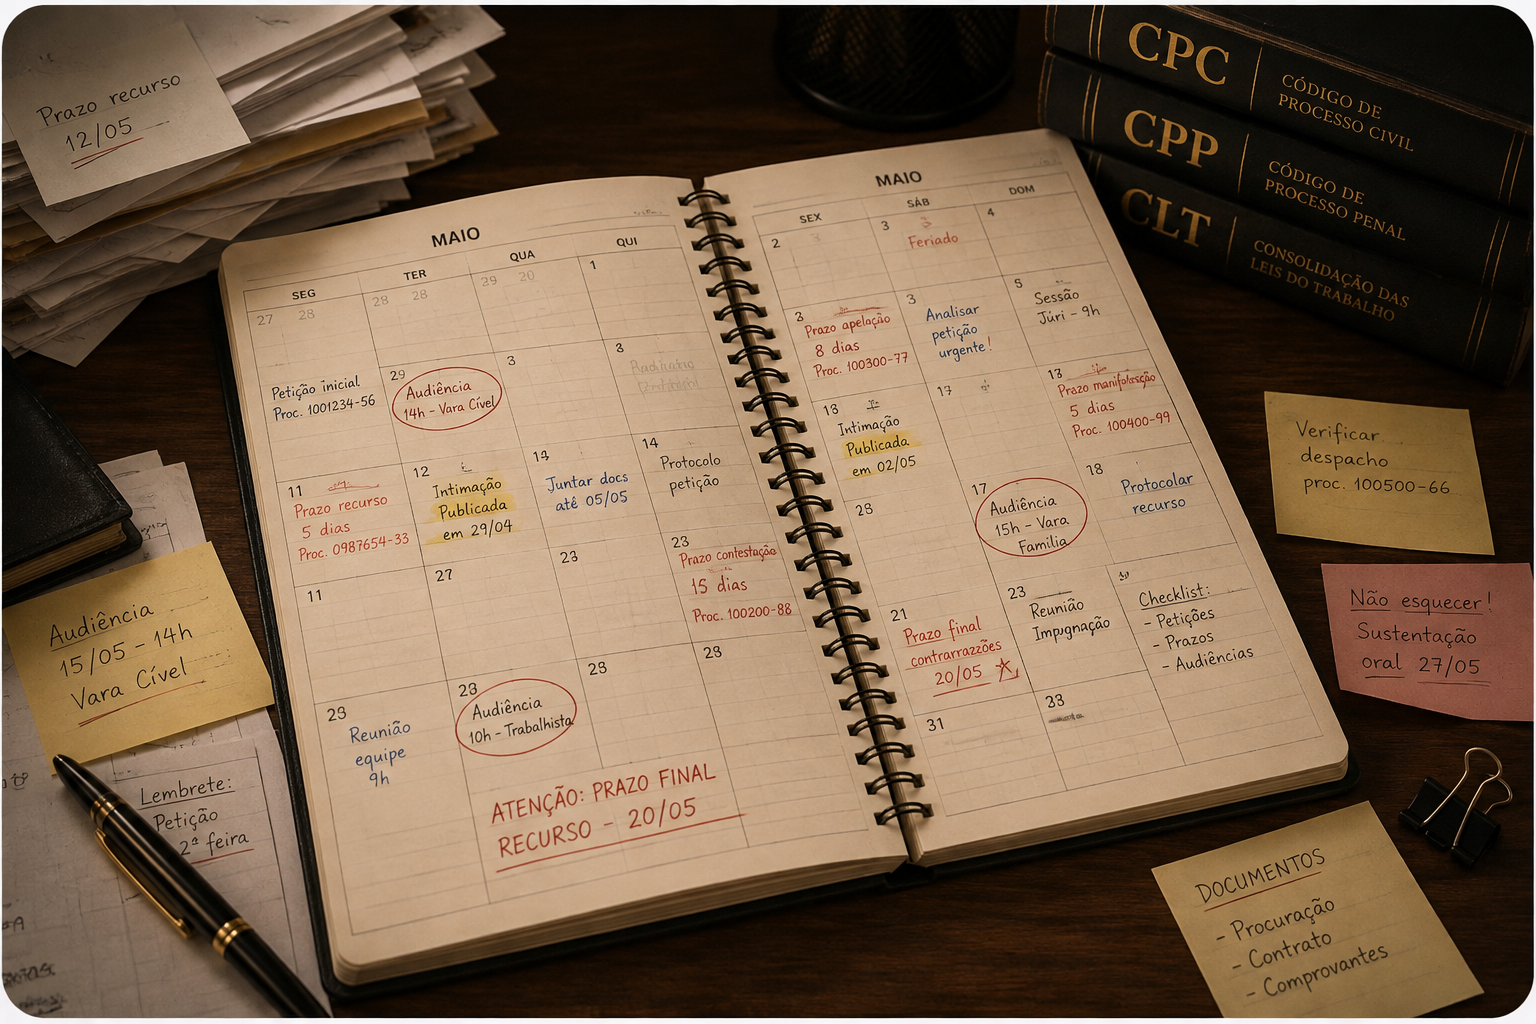 Prazo recurso
12/05
CPC
CÓDIGO DE
PROCESSO CIVIL
CPP
CÓDIGO DE
PROCESSO PENAL
CLT
CONSOLIDAÇÃO DAS
LEIS DO TRABALHO
MAIO
SEG
TER
QUA
QUI
27 28
28 28
29 20
1
Petição inicial
Proc. 1001234-56
29
Audiência
14h - Vara Cível
3
3
11
Prazo recurso
5 dias
Proc. 0987654-33
12
Intimação
Publicada
em 29/04
Juntar docs
até 05/05
14
Protocolo
petição
11
27
23
23
Prazo contestação
15 dias
Proc. 100200-88
23
Reunião
equipe
9h
23
Audiência
10h - Trabalhista
23
23
ATENÇÃO: PRAZO FINAL
RECURSO - 20/05
MAIO
SEX
SÁB
DOM
2
3
3
Feriado
4
3
Prazo apelação
8 dias
Proc. 100300-77
3
Analisar
petição
urgente!
5
Sessão
Júri - 9h
13
Intimação
Publicada
em 02/05
17
13
Prazo manifestação
5 dias
Proc. 100400-99
28
17
Audiência
15h - Vara
Família
18
Protocolar
recurso
21
Prazo final
contrarrazões
20/05
23
Reunião
Impugnação
Checklist:
- Petições
- Prazos
- Audiências
31
33
Audiência
15/05 - 14h
Vara Cível
Lembrete:
Petição
2ª feira
Verificar
despacho
proc. 100500-66
Não esquecer!
Sustentação
oral 27/05
DOCUMENTOS
- Procuração
- Contrato
- Comprovantes